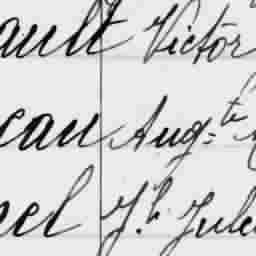 ault Victor
eau Aug=te
nel Jh. Jules